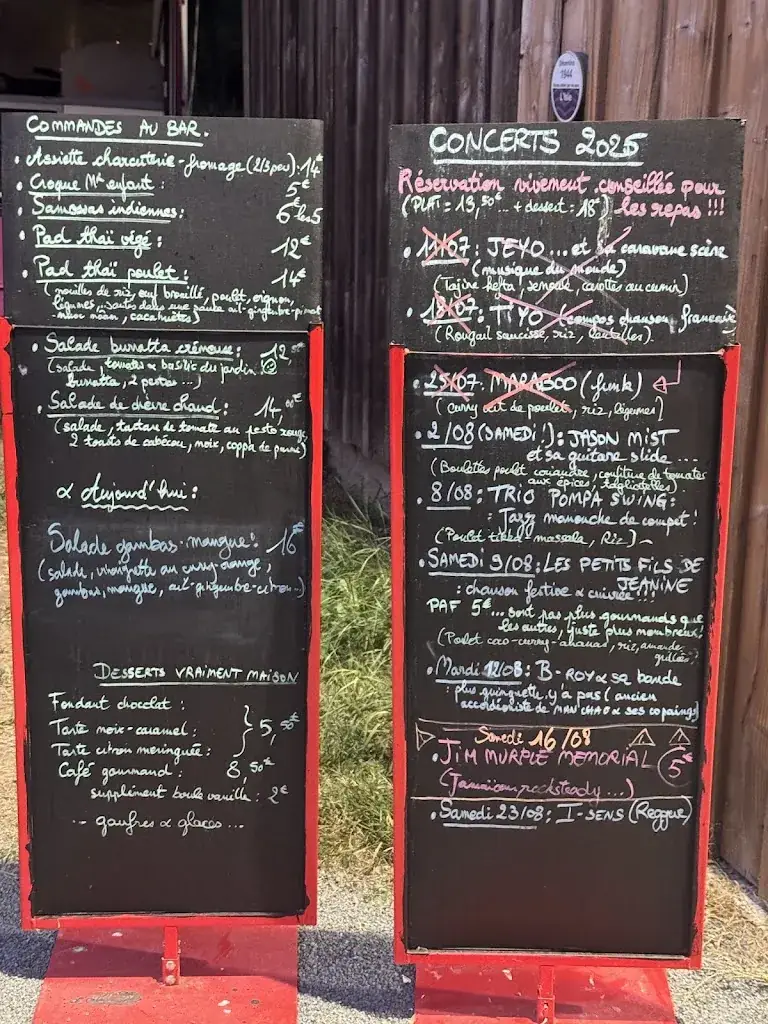 COMMANDES AU BAR.
• Assiette charcuterie-fromage (2/3 pers). 14€
• Croque Mr enfant : 5€
• Samossas indiennes : 6€ les 5
• Pad thaï végé : 12€
• Pad thaï poulet : 14€
(nouilles de riz, œuf brouillé, poulet, oignon,
légumes ... sautés dans une sauce ail-gingembre-piment
cacahuètes)
• Salade burratta crémeuse : 12,
(salade, tomates & basilic du jardin
burratta, 2 pestos ...)
• Salade de chèvre chaud : 14,
(salade, tartare de tomate au pesto rouge,
2 toasts de cabécou, noix, coppa de )
& Aujourd'hui :
Salade gambas-mangue : 16
(salade, vinaigrette au curry-orange,
gambas, mangue, ail-gingembre-citron ...)
DESSERTS VRAIMENT MAISON
Fondant chocolat :
Tarte noix-caramel : 5,50€
Tarte citron meringuée :
Café gourmand : 8,50€
supplément boule vanille : 2€
... gaufres & glaces ...
Décembre
1944
L'Isle
CONCERTS 2025
Réservation vivement conseillée pour
(PLAT = 13,50€ ... + dessert : 18€) les repas !!!
• 11/07 : JEYO ... et sa caravane scène
(musique du monde)
(Tajine kefta, semoule, carottes au cumin)
• 18/07 : TIYO (compos chanson française
(Rougail saucisse, riz, lentilles).
• 25/07 : MARABOO (funk)
(curry vert de poulet, riz, légumes)
• 2/08 (SAMEDI !) : JASON MIST
et sa guitare slide ...
(Boulettes poulet coriandre, confiture de tomates
aux épices, tagliatelles)
• 8/08 : TRIO POMPA SWING :
: Jazz manouche de compet !
(Poulet tikka massala, Riz)
• SAMEDI 9/08 : LES PETITS FILS DE
JEANINE
: chanson festive & cuivrée !!!
PAF 5€ ... sont pas plus gourmands que
les autres, juste plus nombreux !
(Poulet coco-curry-ananas, riz, amande
grillées)
• Mardi 12/08 : B-ROY & sa bande
: plus guinguette, y'a pas (ancien
accordéoniste de MANU CHAO & ses copains)
Samedi 16/08
• JIM MURPLE MEMORIAL 5€
(Jamaïcan rocksteady ...)
• Samedi 23/08 : I-SENS (Reggae)